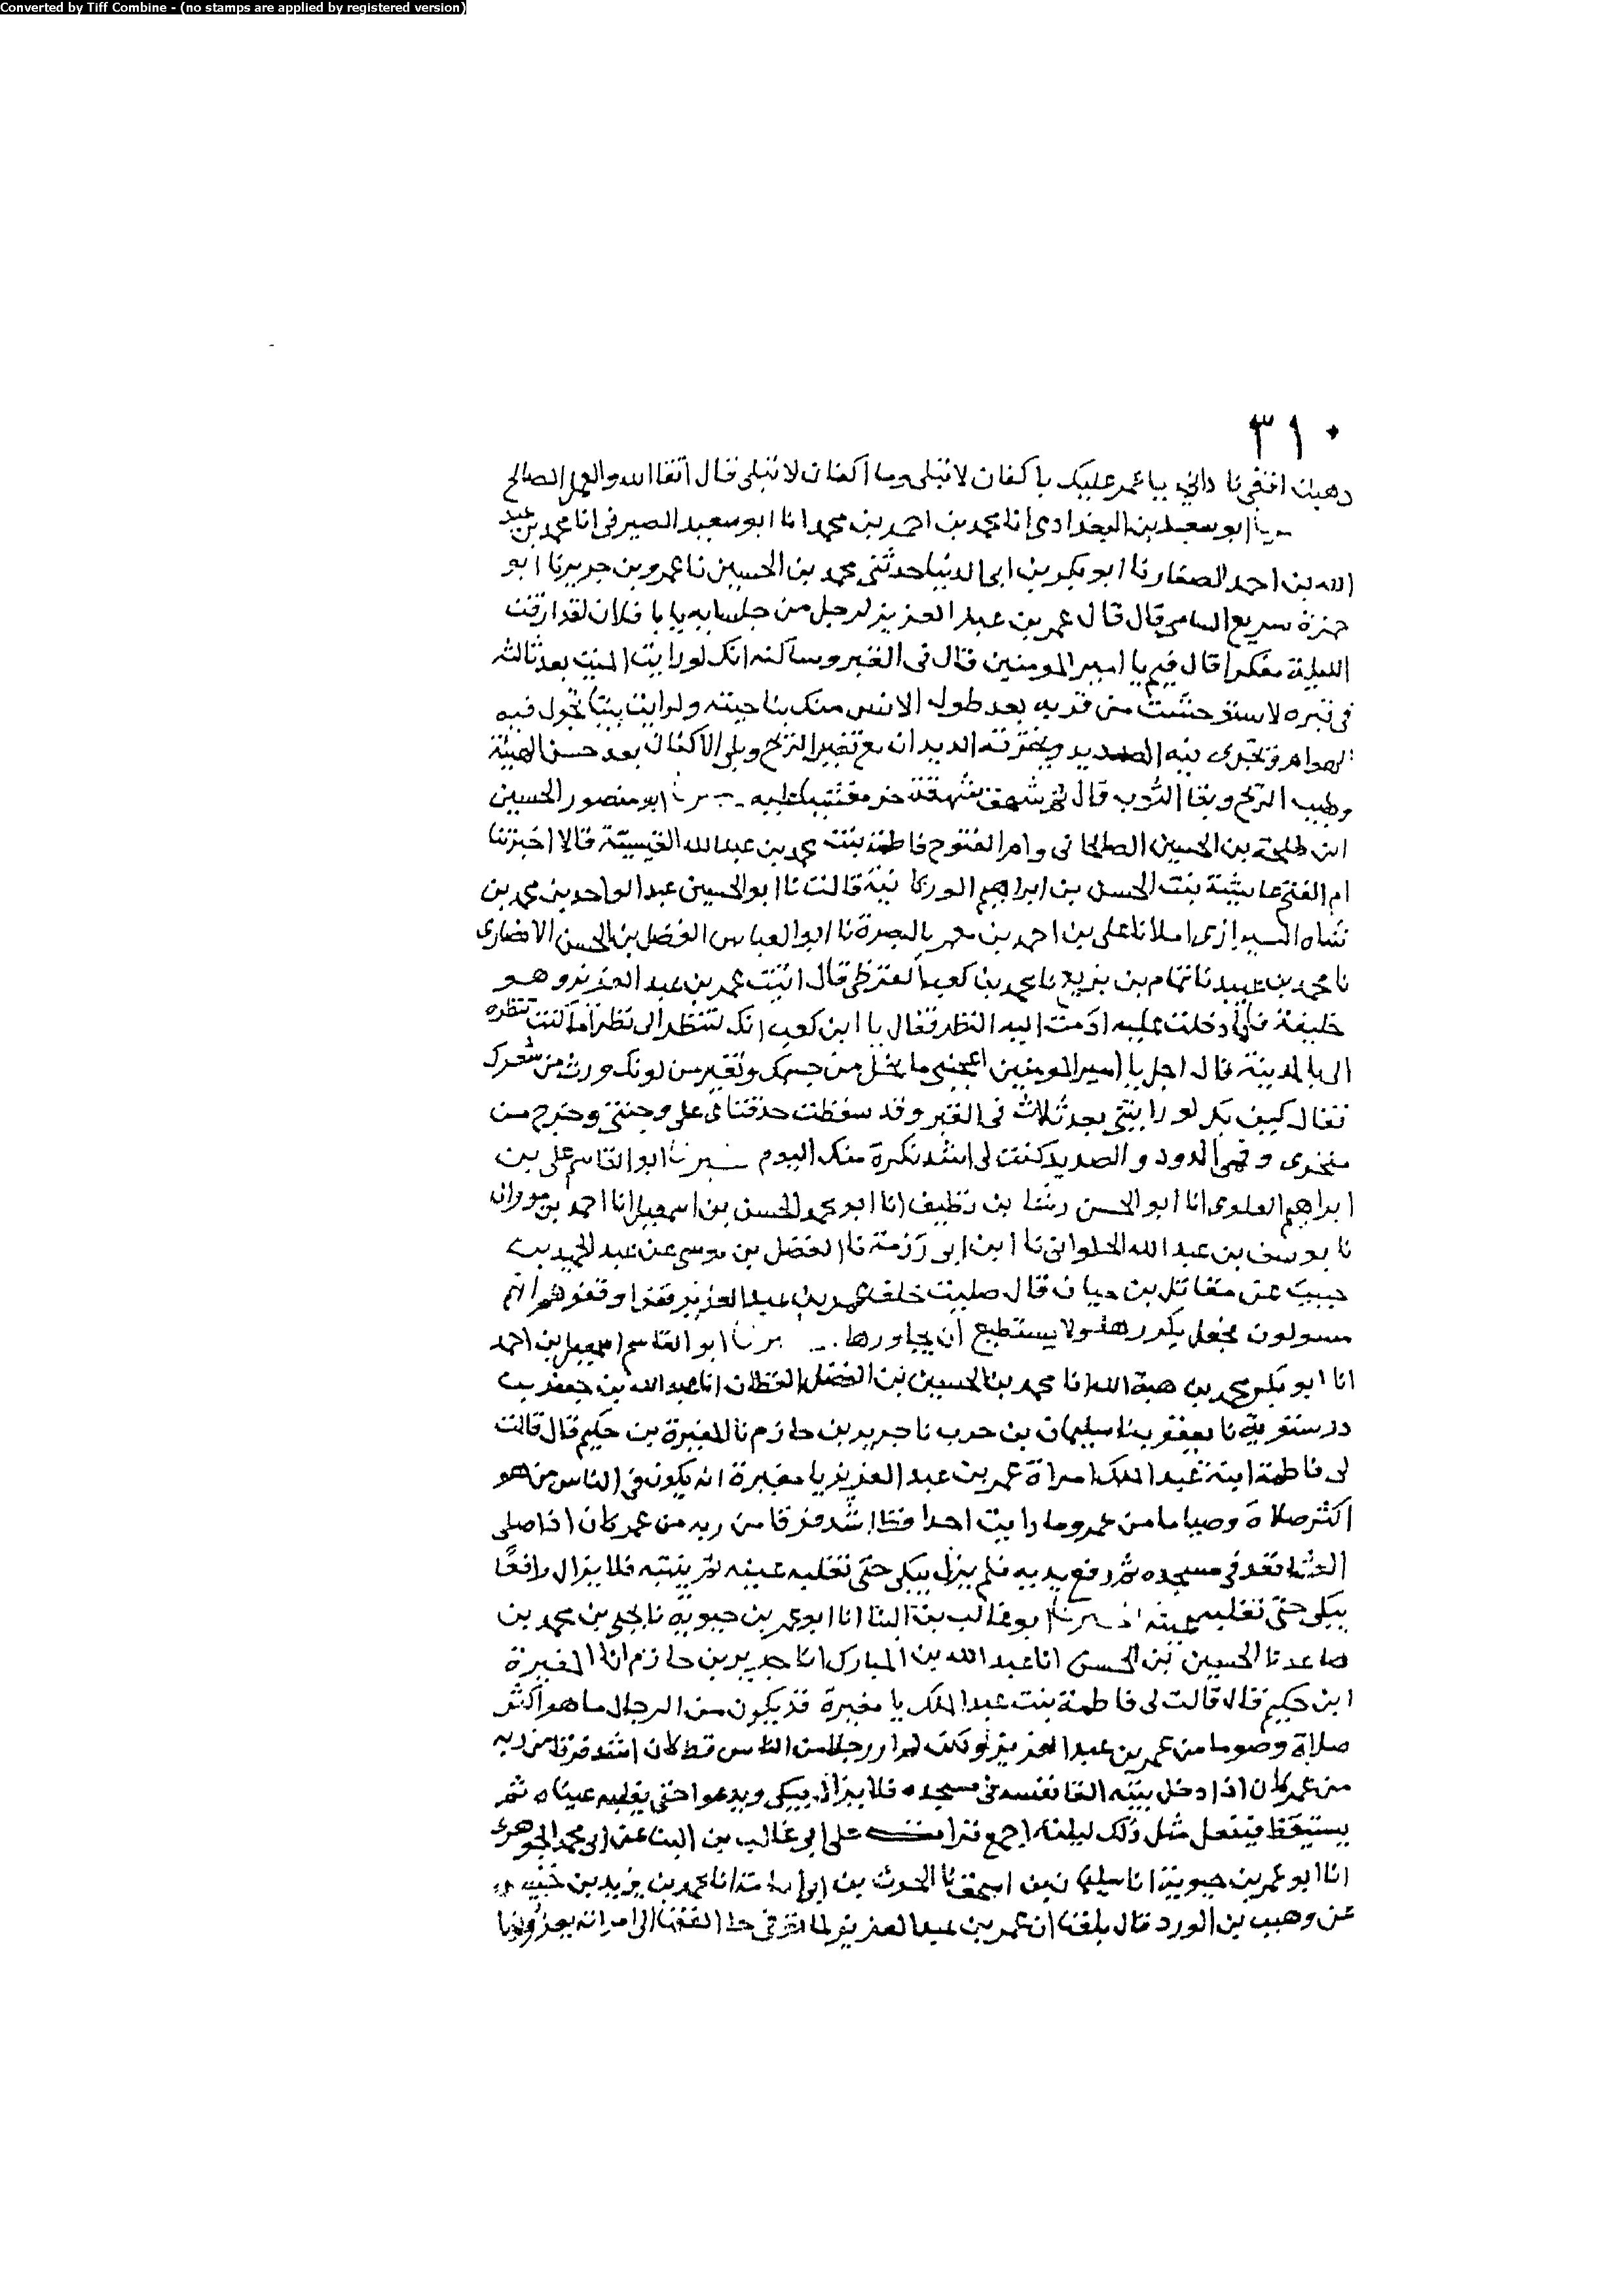 Converted by Tiff Combine - (no stamps are applied by registered version)
٣١٠
ناداني يا عمر عليك باكفان لا تبلى وما اكفان لا تبلى قال اتقا الله والعمل الصالح
ابو سعيد بن البغدادى انا محمد بن احمد بن محمد انا ابو سعيد الصيرفى انا محمد بن عبد
الله بن احمد الصفار نا ابو بكر بن ابى الدنيا حدثنى محمد بن الحسين نا عمرو بن جرير نا ابو
قال قال عمر بن عبد العزيز لرجل من جلسايه يا با فلان لقد ارقت
الليلة مفكرا قال فيم يا امير المومنين قال فى القبر وساكنه انك لو رايت الميت بعد ثالثه
فى قبره لاستوحشت من قربه بعد طول الانس منك بناحيته ولرايت بيتا تجول فيه
الهوام وتجرى فيه الصديد وتخترقه الديدان مع تغير الريح وبلى الاكفان بعد حسن الهيئة
وطيب الريح ونقا الثوب قال ثم شهق شهقة خر مغشيا عليه ابو منصور الحسين
ابن طلحة بن الحسين الصالحانى وام الفتوح فاطمة بنت محمد بن عبد الله القيسية قالا اخبرتنا
ام الفتح عايشة بنت الحسن بن ابراهيم الوركانية قالت نا ابو الحسين عبد الواحد بن محمد بن
شاه الشيرازى املانا على بن احمد بن معمر بالبصرة نا ابو العباس الفضل بن الحسن الانصارى
نا محمد بن عبيد نا تمام بن بزيع نا محمد بن كعب القرظى قال اتيت عمر بن عبد العزيز وهو
خليفة فلما دخلت عليه ادمت اليه النظر فقال يا ابن كعب انك تنظر الى نظرا ما كنت تنظره
الى بالمدينة قال اجل يا امير المومنين اعجبنى ما نحل من جسمك وتغير من لونك ورث من شعرك
فقال كيف بك لو رايتنى بعد ثلاث فى القبر وقد سقطت حدقتاى على وجنتى وخرج من
منخرى وفمى الدود والصديد كنت لى اشد نكرة منك اليوم ابو القاسم على بن
ابراهيم العلوى انا ابو الحسن رشا بن نظيف انا ابو محمد الحسن بن اسمعيل انا احمد بن مروان
نا يوسف بن عبد الله الحلوانى نا ابن ابى رزمة نا الفضل بن موسى عن عبد الحميد بن
حبيب عن مقاتل بن حيان قال صليت خلف عمر بن عبد العزيز فقرا وقفوهم انهم
مسولون فجعل يكررها ولا يستطيع ان يجاوزها ابو القاسم اسمعيل بن احمد
انا ابو بكر محمد بن هبة الله انا محمد بن الحسين بن الفضل القطان انا عبد الله بن جعفر بن
درستوية نا يعقوب نا سليمان بن حرب نا جرير بن حازم نا المغيرة بن حكيم قال قالت
لى فاطمة ابنة عبد الملك امراة عمر بن عبد العزيز يا مغيرة انه يكون فى الناس من هو
اكثر صلاة وصياما من عمر وما رايت احدا قط اشد فرقا من ربه من عمر كان اذا صلى
العشا قعد فى مسجده ثم رفع يديه فلم يزل يبكى حتى تغلبه عينه ثم ينتبه فلا يزال رافعا
يبكى حتى تغلبه عينه ابو غالب بن البنا انا ابو عمر بن حيوية نا يحيى بن محمد بن
صاعد نا الحسين بن الحسن انا عبد الله بن المبارك انا جرير بن حازم انا المغيرة
ابن حكيم قال قالت لى فاطمة بنت عبد الملك يا مغيرة قد يكون من الرجال ما هو اكثر
صلاة وصوما من عمر بن عبد العزيز ولكن لم ار رجلا من الناس قط كان اشد فرقا من ربه
من عمر كان اذا دخل بيته القا نفسه فى مسجده فلا يزال يبكى ويدعوا حتى يغلبه عيناه ثم
يستيقظ فيفعل مثل ذلك ليلته اجمع على ابى غالب بن البنا عن ابى محمد الجوهرى
انا ابو عمر بن حيوية انا سليمان بن اسحق نا الحرث بن ابى اسامة انا محمد بن يزيد بن خنيس
عن وهيب بن الورد قال بلغنا ان عمر بن عبد العزيز لما